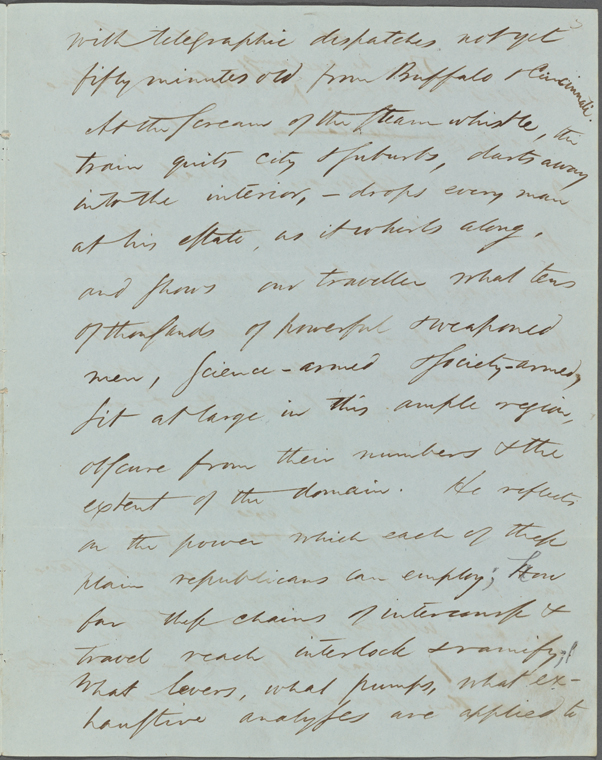 with telegraphic despatches not yet
fifty minutes old from Buffalo & Cincinnati.
At the scream of the steam whistle, the
train quits city & suburbs, darts away
into the interior, – drops every man
at his estate, as it whirls along,
and shows our traveller what tens
of thousands of powerful & weaponed
men, science-armed & society-armed,
sit at large in this ample region,
obscure from their numbers & the
extent of the domain. He reflects
on the power which each of these
plain republicans can employ; How
far these chains of intercourse &
travel reach interlock & ramify;
What levers, what pumps, what ex-
haustive analyses are applied to